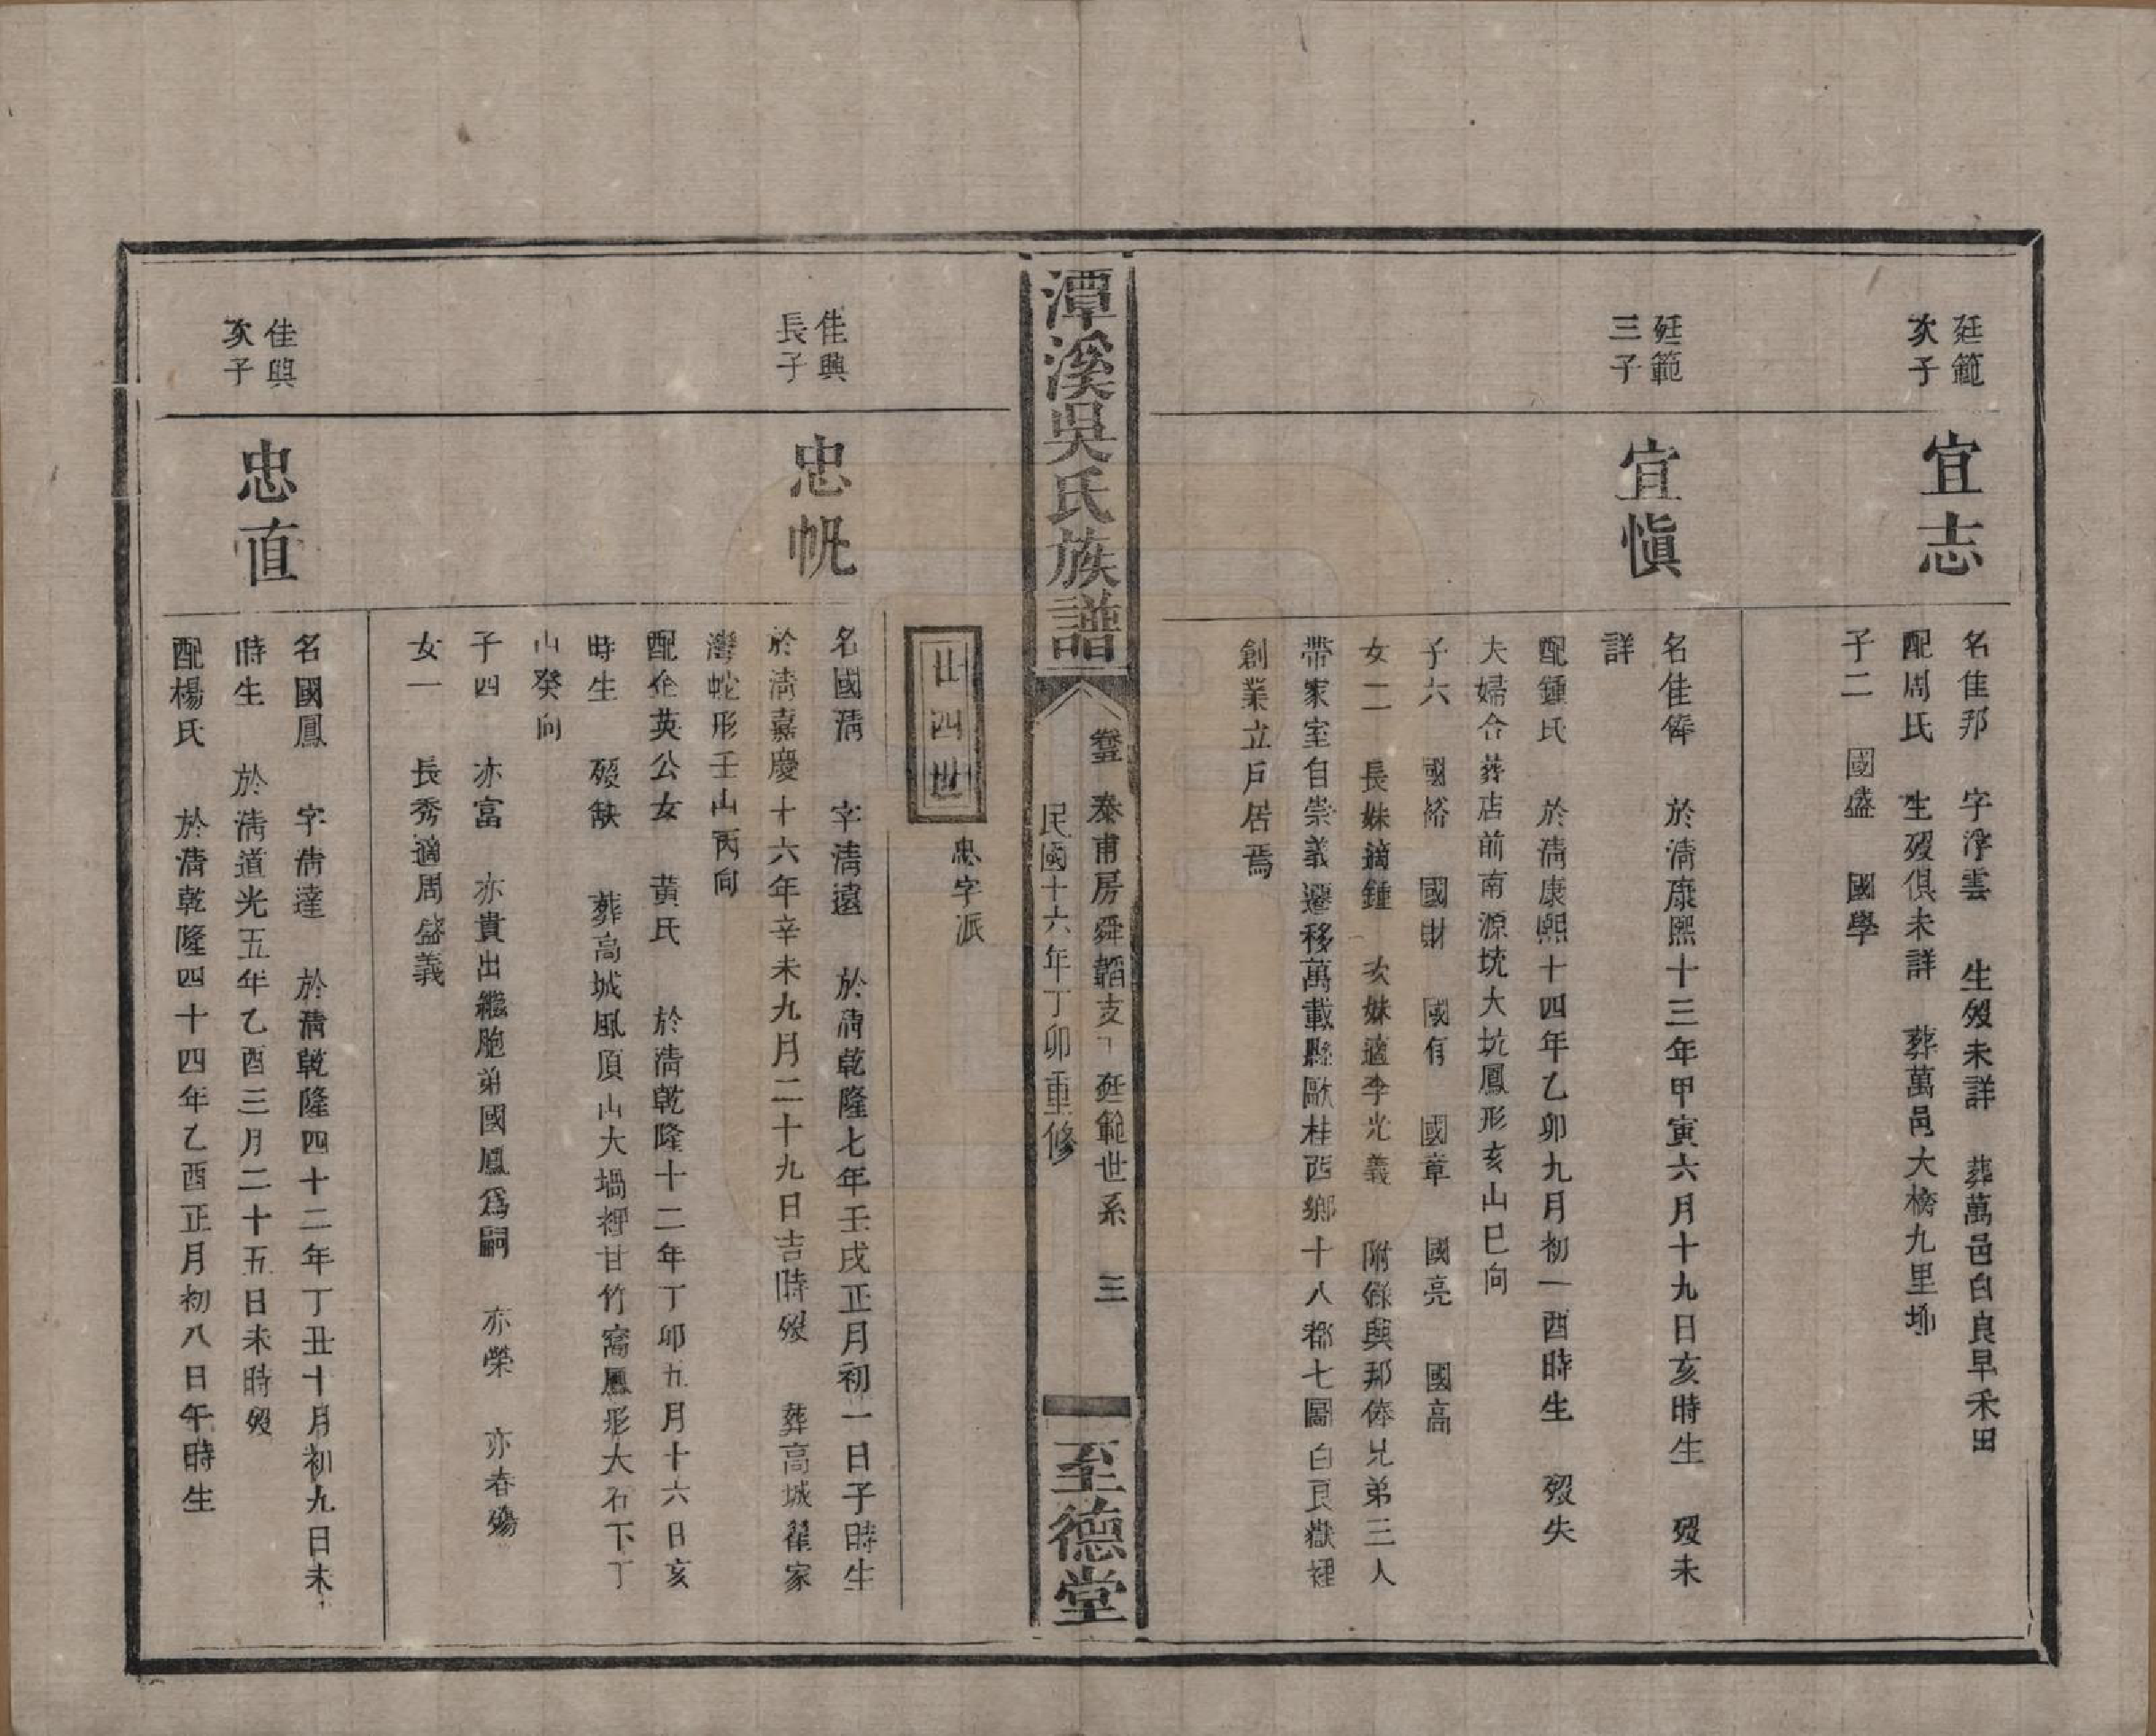 廷範
次子
宜志
名佳邦　字浮雲　生歿未詳　葬萬邑白良早禾田
配周氏　生歿俱未詳　葬萬邑大榜九里㘭
子二　國盛　國學
廷範
三子
宜愼
名佳俸　於淸康熙十三年甲寅六月十九日亥時生　歿未
詳
配鍾氏　於淸康熙十四年乙卯九月初一酉時生　歿失
夫婦合葬店前南源坑大坑鳳形亥山巳向
子六　國裕　國財　國有　國章　國亮　國高
女二　長妹適鍾　次妹適李光義　附錄與邦俸兄弟三人
帶家室自崇義遷移萬載縣歐桂西鄉十八都七圖白良嶽裡
創業立戶居焉
潭溪吳氏族譜
卷五　泰甫房舜韜支下廷範世系　三
民國十六年丁卯重修
至德堂
廿四世
忠字派
佳興
長子
忠帆
名國淸　字淸遠　於淸乾隆七年壬戌正月初一日子時生
於淸嘉慶十六年辛未九月二十九日吉時歿　葬高城翟家
灣蛇形壬山丙向
配企英公女　黃氏　於淸乾隆十二年丁卯五月十六日亥
時生　歿缺　葬高城風頂山大塌裡甘竹窩鳳形大石下丁
山癸向
子四　亦富　亦貴出繼胞弟國鳳爲嗣　亦榮　亦春殤
女一　長秀適周盛義
佳興
次子
忠直
名國鳳　字淸達　於淸乾隆四十二年丁丑十月初九日未
時生　於淸道光五年乙酉三月二十五日未時歿
配楊氏　於淸乾隆四十四年乙酉正月初八日午時生